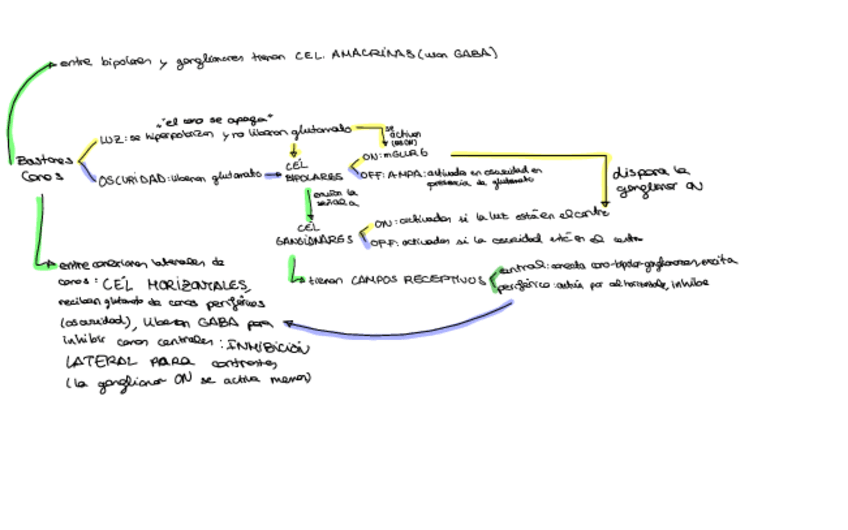 entre bipolares y ganglionares tienen CEL. AMACRINAS (usan GABA)
"el cono se apaga"
LUZ: se hiperpolarizan y no liberan glutamato
se activan
Bastones
Conos
OSCURIDAD: liberan glutamato
CÉL
BIPOLARES
ON: mGLUR6
OFF: AMPA: activada en oscuridad en
presencia de glutamato
dispara la
ganglionar ON
envían la
señal a
CÉL
GANGIONARES
ON: activadas si la luz está en el centro
OFF: activadas si la oscuridad está en el centro
tienen CAMPOS RECEPTIVOS
central: conecta cono-bipolar-ganglionar, excita
periférico: actúa por cel horizontale, inhibe
entre conexiones laterales de
conos: CÉL HORIZONTALES,
reciben glutamato de conos periféricos
(oscuridad), liberan GABA para
inhibir conos centrales: INHIBICIÓN
LATERAL PARA contrastes
(la ganglionar ON se activa menos)